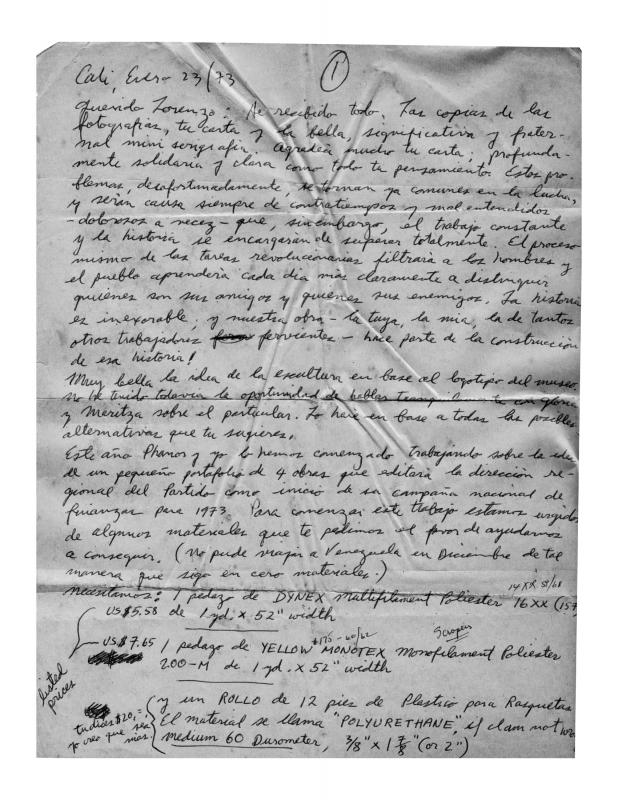 ①
Cali, Enero 23/73
Querido Lorenzo: He recibido todo. Las copias de las
fotografías, tu carta y la bella, significativa y frater-
nal mini serigrafía. Agradecí mucho tu carta, profunda-
mente solidaria y clara como todo tu pensamiento. Estos pro-
blemas, desafortunadamente, se tornan ya comunes en la lucha,
y serán causa siempre de contratiempos y mal entendidos
-dolorosos a vecez- que, sin embargo, el trabajo constante
y la historia se encargarán de superar totalmente. El proceso
mismo de las tareas revolucionarias filtrará a los hombres y
el pueblo aprenderá cada día más claramente a distinguir
quiénes son sus amigos y quiénes sus enemigos. La historia
es inexorable. y nuestra obra - la tuya, la mía, la de tantos
otros trabajadores fervientes - hace parte de la construcción
de esa historia!
Muy bella la idea de la escultura en base al logotipo del museo.
No he tenido todavía la oportunidad de hablar con Gloria
y Maritza sobre el particular. Lo haré en base a todas las posibles
alternativas que tu sugieres.
Este año Phanor y yo lo hemos comenzado trabajando sobre la idea
de un pequeño portafolio de 4 obras que editará la dirección re-
gional del Partido como inicio de su campaña nacional de
finanzas para 1973. Para comenzar este trabajo estamos urgidos
de algunos materiales que te pedimos el favor de ayudarnos
a conseguir. (No pude viajar a Venezuela en Diciembre de tal
manera que sigo en cero materiales.)
14XX
Necesitamos: 1 pedazo de DYNEX Multifilament Poliester 16XX (157
US$5.58 de 1 yd. x 52" width
US$7.65 1 pedazo de YELLOW MONOTEX Monofilament Poliester
200-M de 1 yd. x 52" width
listed
prices
y un ROLLO de 12 pies de Plastico para Rasquetas
tu dices $20,=
yo creo que sea
más.
El material se llama "POLYURETHANE", if clam not
medium 60 Durometer, 3/8" x 1 7/8" (or 2")